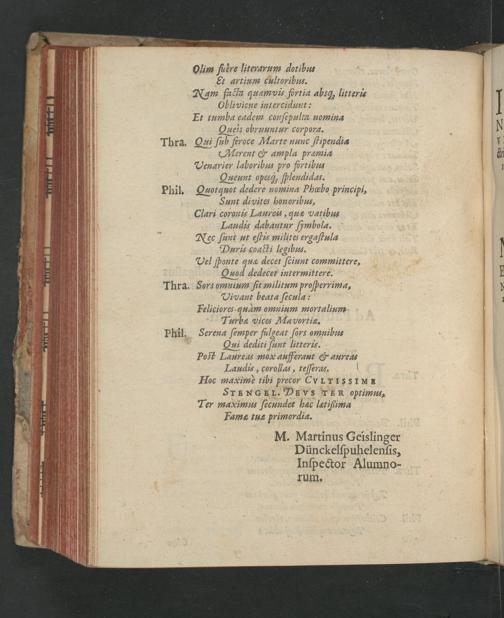 Olim fuêre literarum dotibus
Et artium cultoribus.
Nam facta quamvis fortia absq; litteris
Oblivione intercidunt:
Et tumba eadem consepulta nomina
Queis obruuntur corpora.
Thra. Qui sub feroce Marte nunc stipendia
Merent & ampla præmia
Venarier laboribus pro fortibus
Queunt opesq; splendidas.
Phil. Quotquot dedere nomina Phœbo principi,
Sunt divites honoribus,
Clari coronis Laureis, quæ vatibus
Laudis dabantur symbola.
Nec sunt ut estis milites ergastula
Duris coacti legibus.
Vel sponte quæ decet sciunt committere,
Quod dedecet intermittere.
Thra. Sors omnium sit militum prosperrima,
Vivant beata secula:
Feliciores quàm omnium mortalium
Turbæ vices Mavortia.
Phil. Serena semper fulgeat sors omnibus
Qui dediti sunt litteris.
Post Laureas mox aufferant & aureas
Laudis, corollas, tesseras.
Hoc maximè tibi precor CVLTISSIME
STENGEL. DEVS TER optimus,
Ter maximus secundet hac latissima
Famæ tuæ primordia.
M. Martinus Geislinger
Dünckelspuhelensis,
Inspector Alumno-
rum.